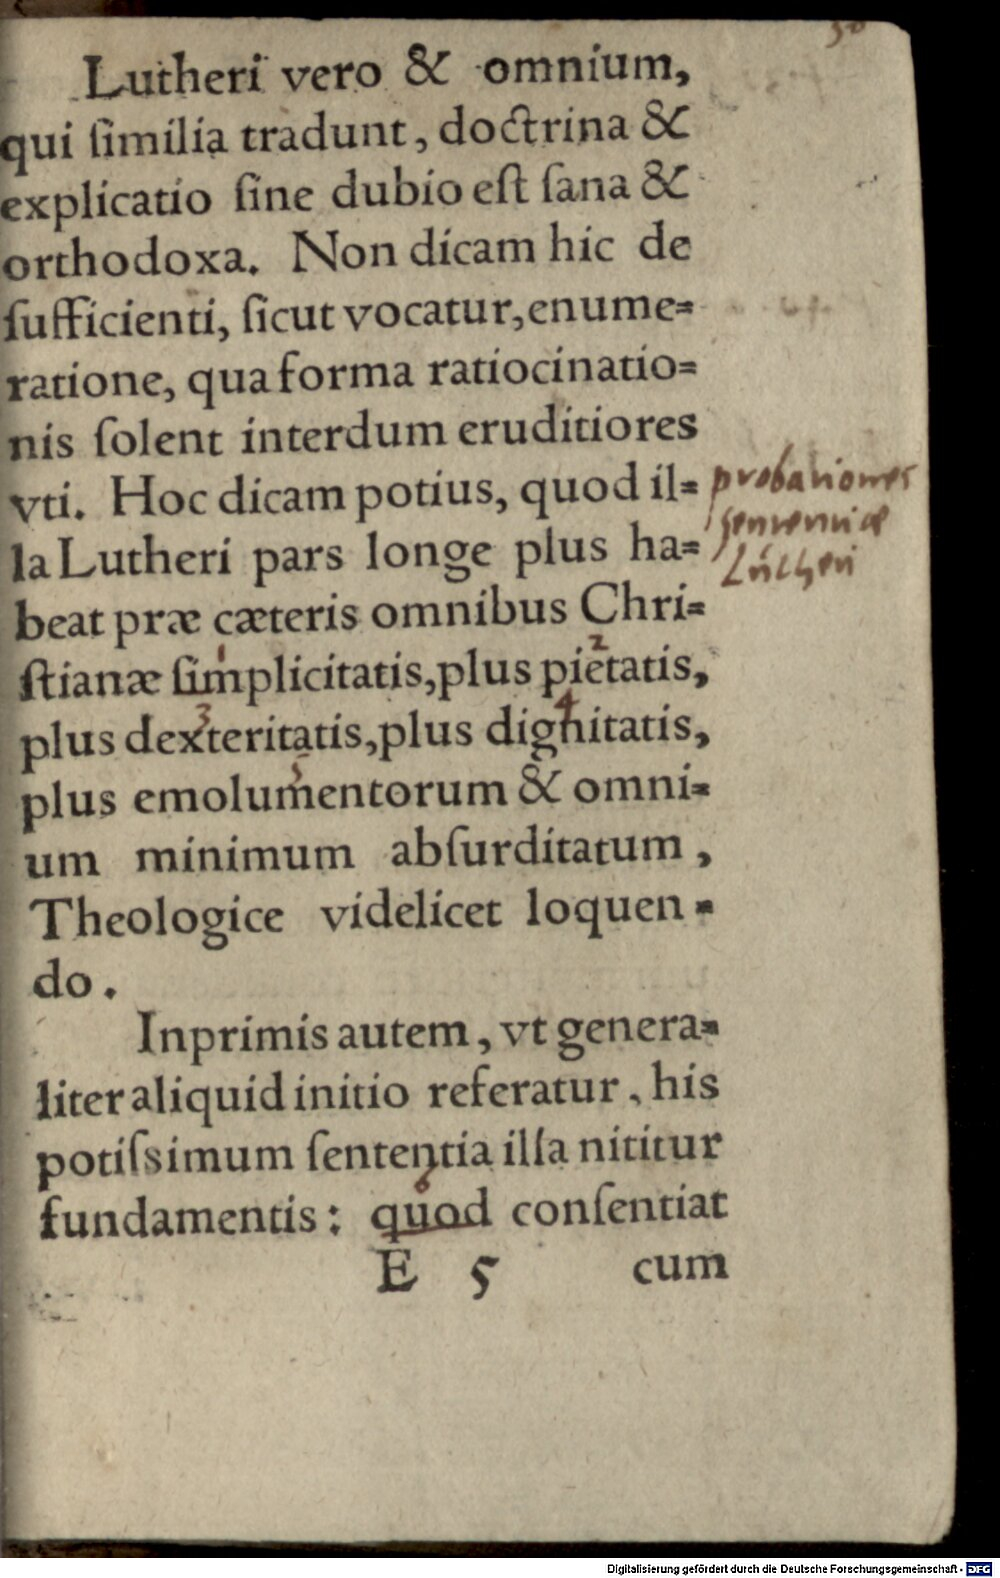 50
Lutheri vero & omnium,
qui ſimilia tradunt, doctrina &
explicatio ſine dubio eſt ſana &
orthodoxa. Non dicam hic de
ſufficienti, ſicut vocatur, enume=
ratione, qua forma ratiocinatio=
nis ſolent interdum eruditiores
vti. Hoc dicam potius, quod il=
la Lutheri pars longe plus ha=
beat præ cæteris omnibus Chri=
ſtianæ ſimplicitatis, plus pietatis,
plus dexteritatis, plus dignitatis,
plus emolumentorum & omni=
um minimum abſurditatum,
Theologice videlicet loquen=
do.
probationes
sententiæ
Lutheri
1
2
3
4
5
Inprimis autem, vt genera=
liter aliquid initio referatur, his
potiſsimum ſententia illa nititur
fundamentis: quod conſentiat
E 5 cum
Digitalisierung gefördert durch die Deutsche Forschungsgemeinschaft - DFG